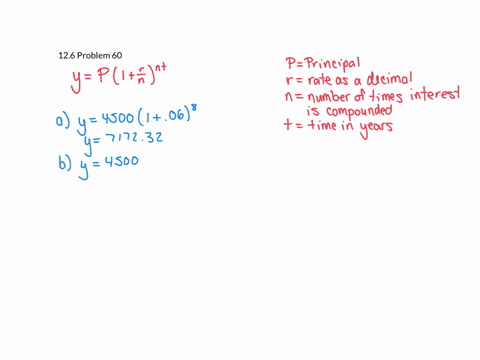 12.6 Problem 60
y = P(1 + r/n)^nt
a) y = 4500(1 + .06)^8
y = 7172.32
b) y = 4500
P = Principal
r = rate as a decimal
n = number of times interest
is compounded
t = time in years